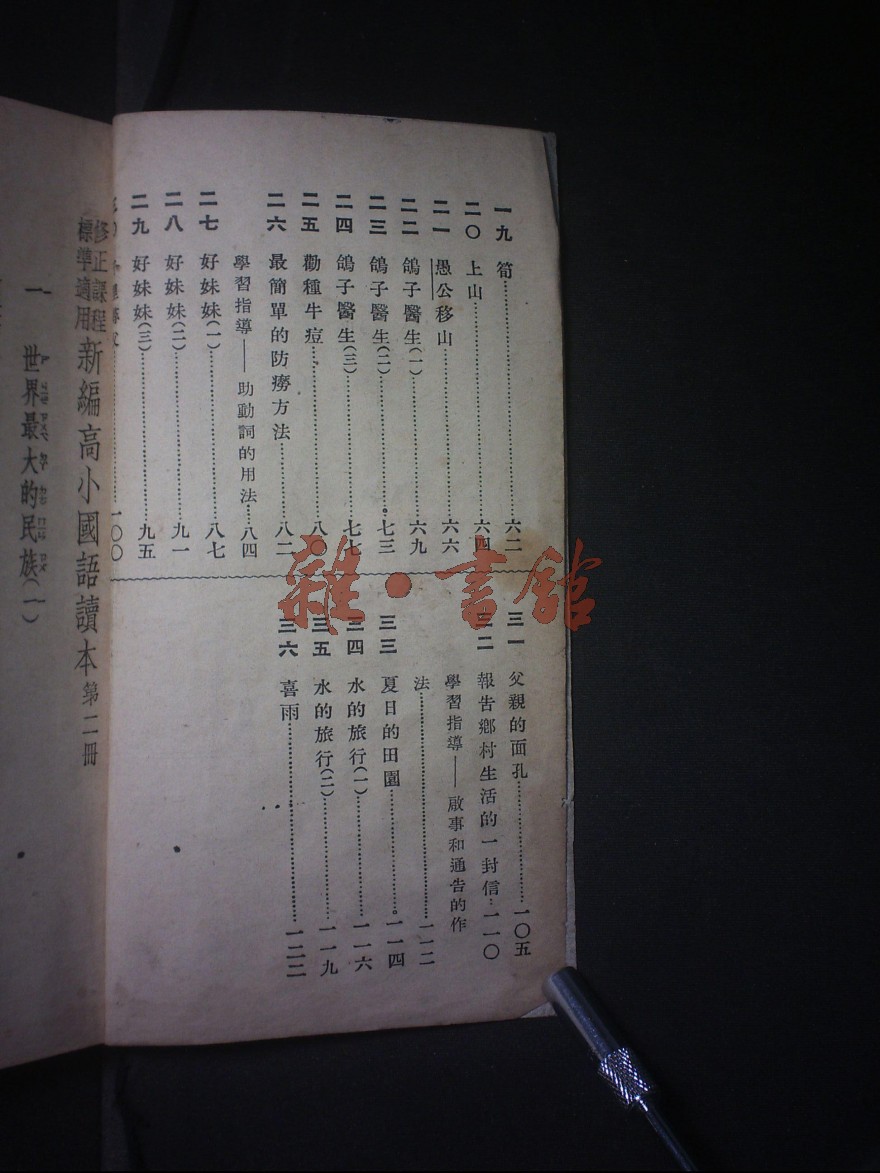 一九 筍……六二
二〇 上山……六四
二一 愚公移山……六六
二二 鴿子醫生(一)……六九
二三 鴿子醫生(二)……七三
二四 鴿子醫生(三)……七七
二五 勸種牛痘……八〇
二六 最簡單的防癆方法……八二
學習指導——助動詞的用法……八四
二七 好妹妹(一)……八七
二八 好妹妹(二)……九一
二九 好妹妹(三)……九五
一〇〇
三一 父親的面孔……一〇五
三二 報告鄉村生活的一封信…一一〇
學習指導——啟事和通告的作
法……一一二
三三 夏日的田園……一一四
三四 水的旅行(一)……一一六
三五 水的旅行(二)……一一九
三六 喜雨……一二二
修正課程
標準適用 新編高小國語讀本 第二冊
一 世界最大的民族(一)
雜·書館